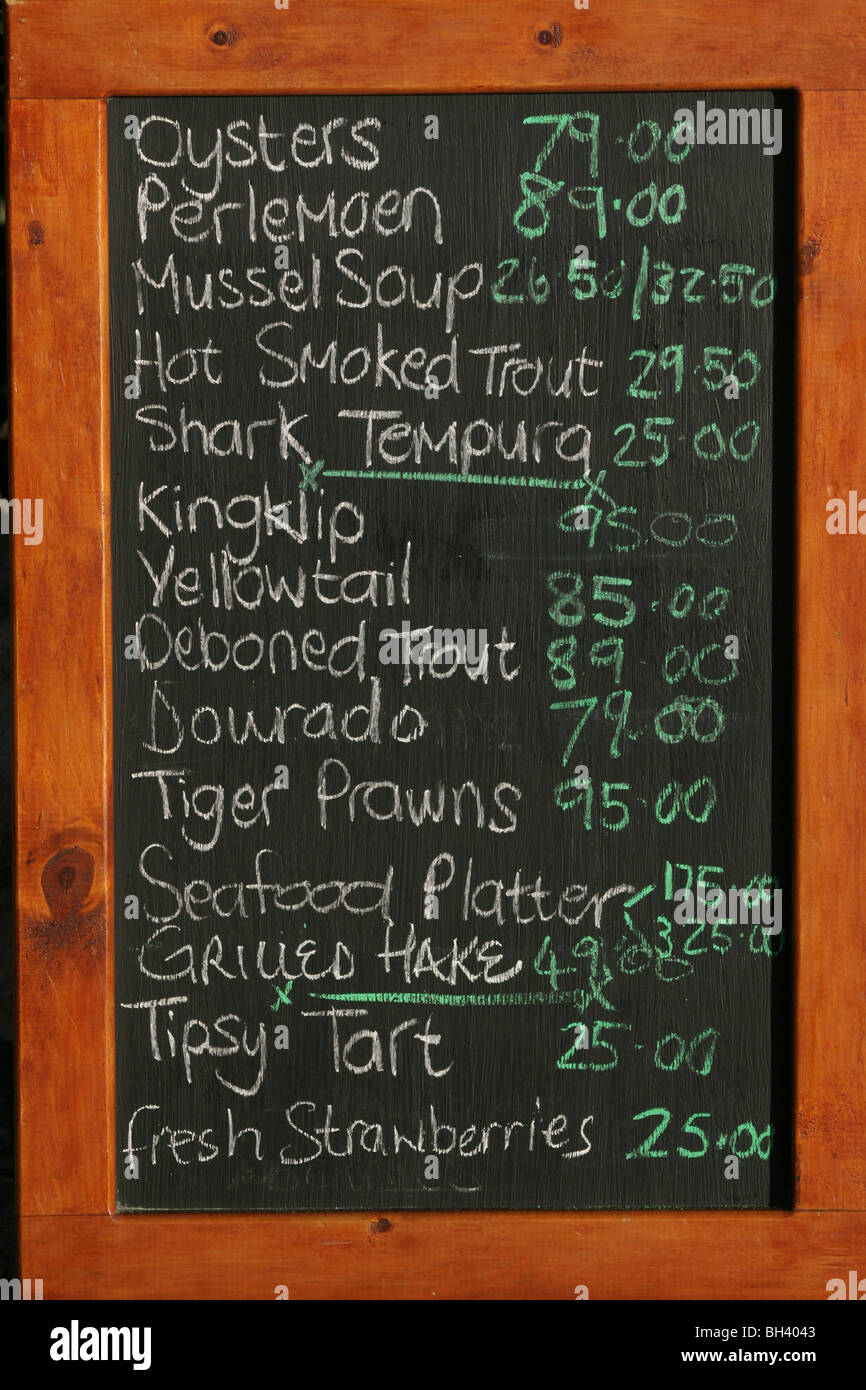 Oysters 79.00
Perlemoen 89.00
Mussel Soup 26.50/32.50
Hot Smoked Trout 29.50
Shark Tempura 25.00
x x
Kingklip 95.00
Yellowtail 85.00
Deboned Trout 89.00
Dourado 79.00
Tiger Prawns 95.00
Seafood Platter < 175.00
325.00
GRILLED HAKE 49.00
x x
Tipsy Tart 25.00
fresh Strawberries 25.00
a alamy stock photo
BH4043
www.alamy.com